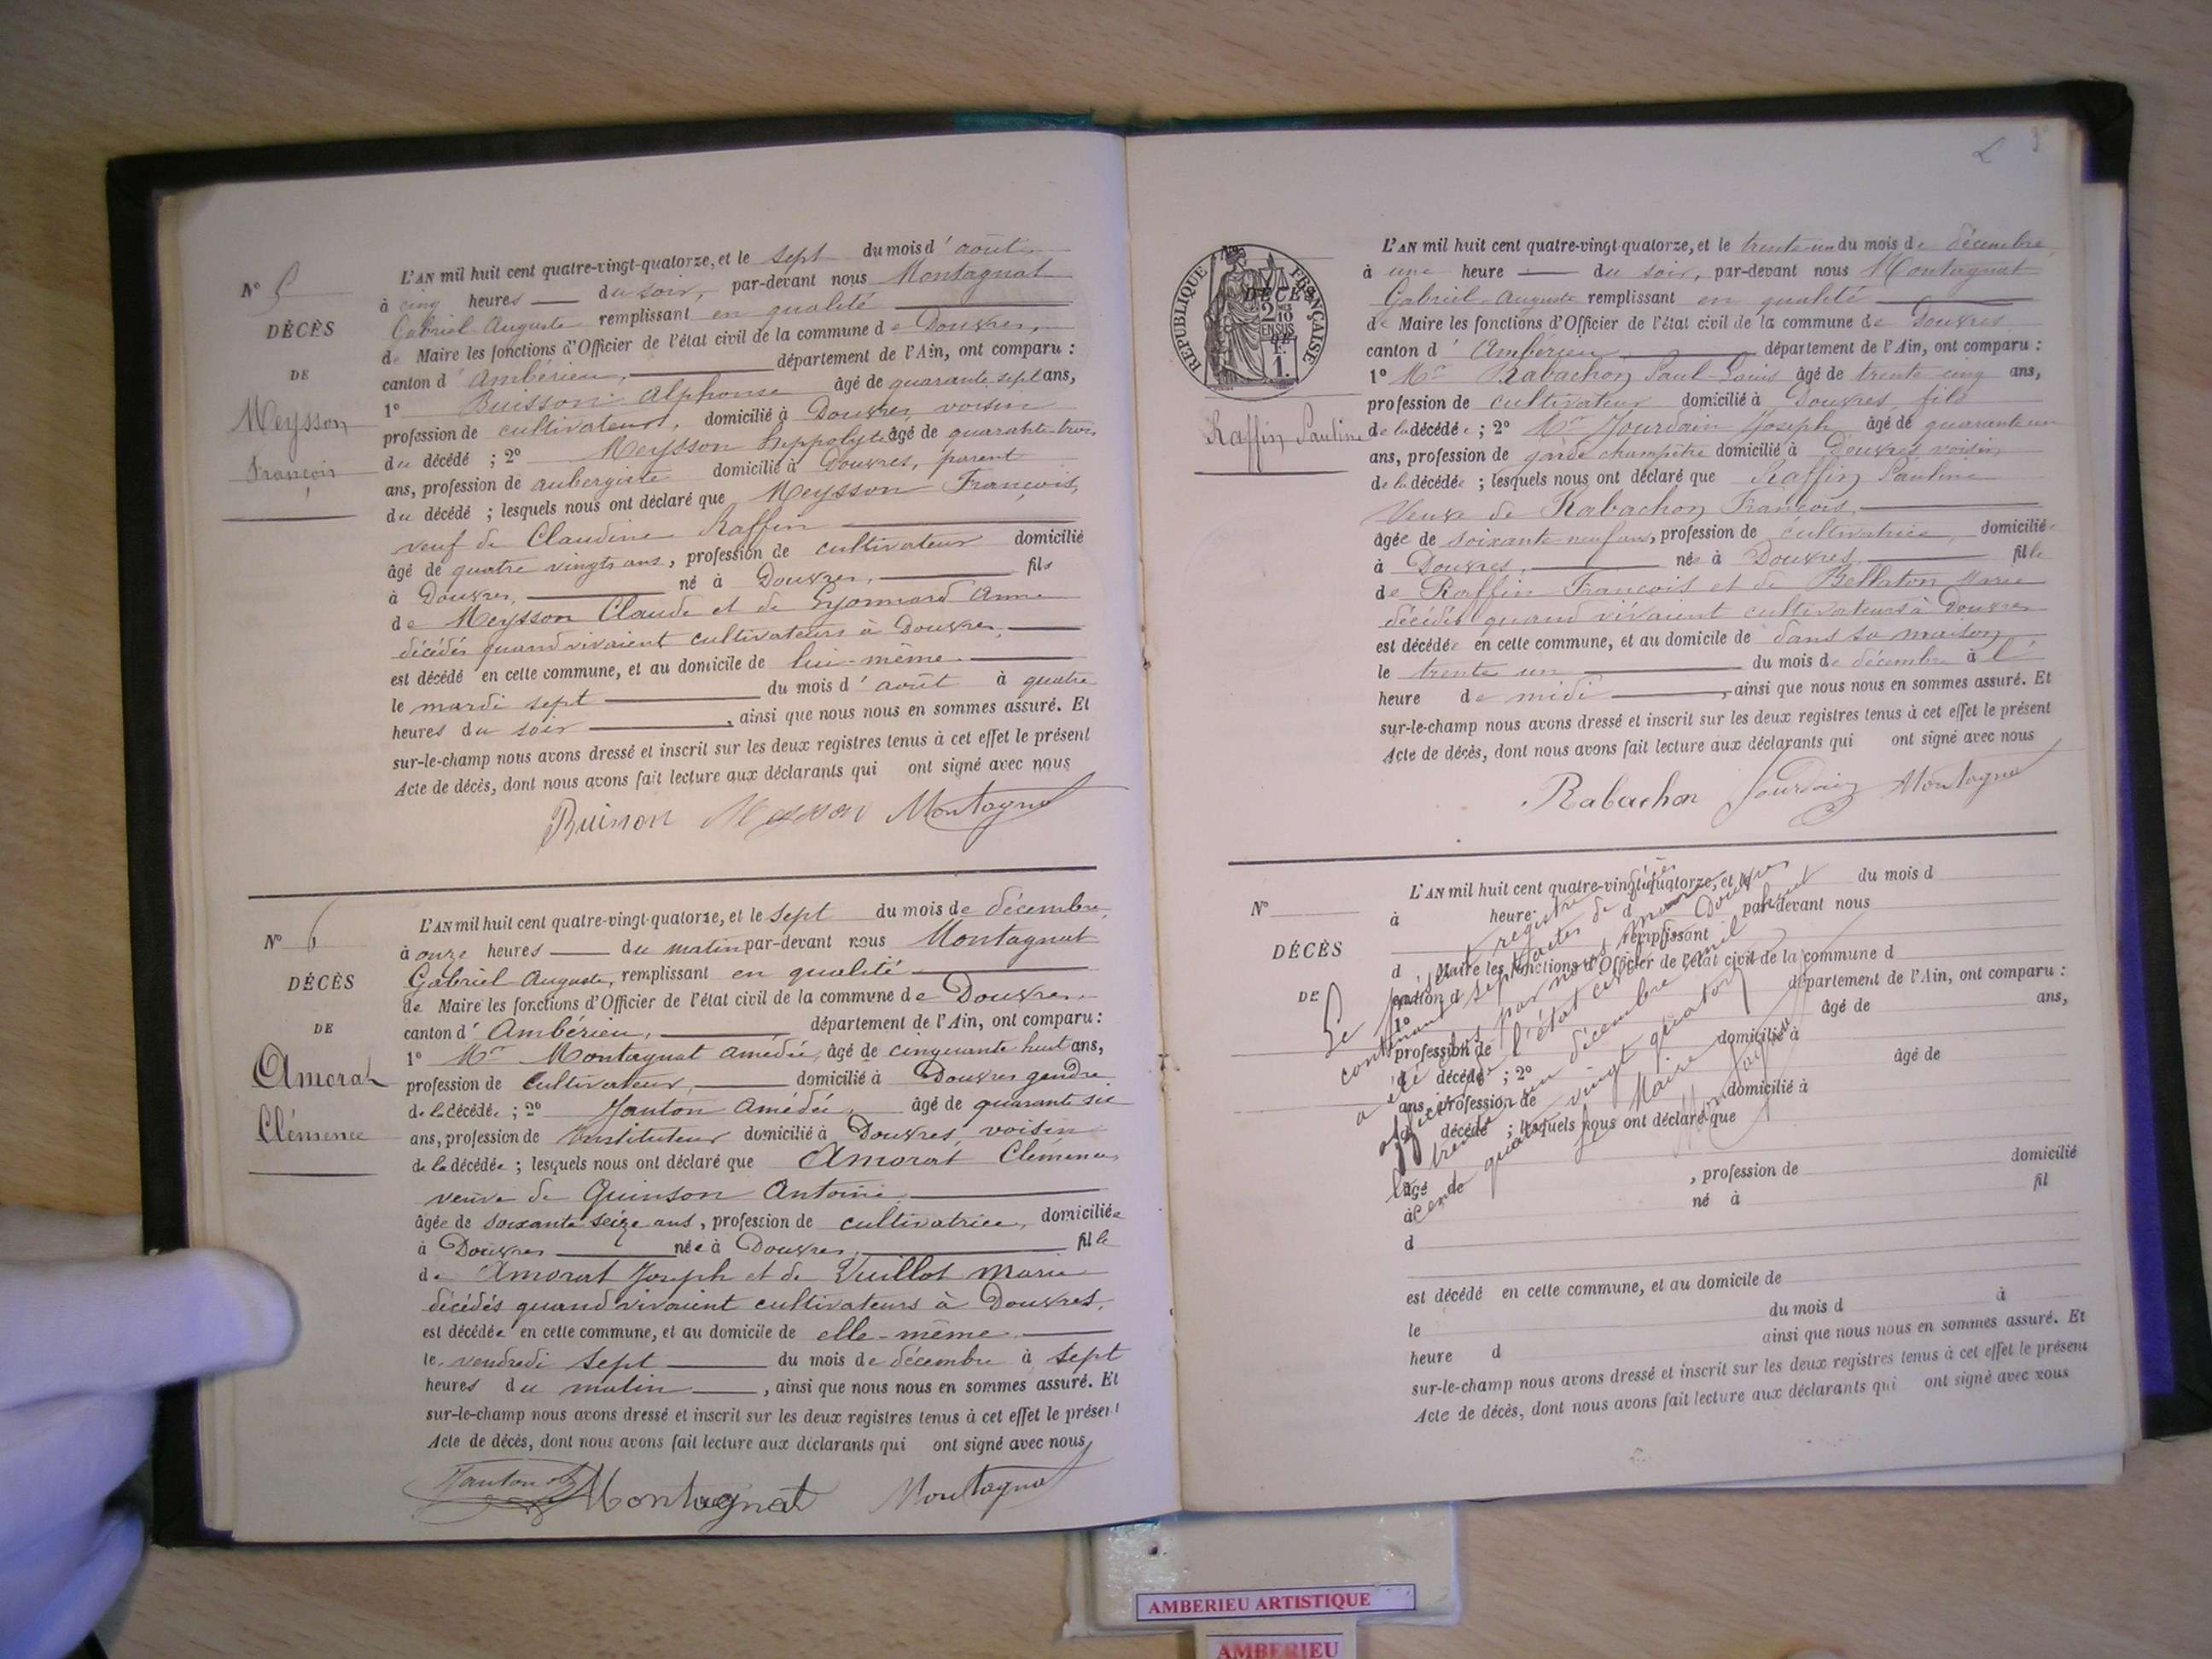 N° 5
DÉCÈS
DE
Meysson
François
L'AN mil huit cent quatre-vingt-quatorze, et le sept du mois d'août
à cinq heures du soir, par-devant nous Montagnat
Gabriel Auguste remplissant en qualité
de Maire les fonctions d'Officier de l'état civil de la commune de Douvres,
canton d'Ambérieu, département de l'Ain, ont comparu :
1° Buisson Alphonse âgé de quarante sept ans,
profession de cultivateur, domicilié à Douvres, voisin
du décédé ; 2° Meysson Hyppolyte âgé de quarante-trois
ans, profession de aubergiste domicilié à Douvres, parent
du décédé ; lesquels nous ont déclaré que Meysson François,
veuf de Claudine Raffin
âgé de quatre vingts ans, profession de cultivateur domicilié
à Douvres, né à Douvres, fils
de Meysson Claude et de Lyonnard Anne
décédés quand vivaient cultivateurs à Douvres,
est décédé en cette commune, et au domicile de lui-même
le mardi sept du mois d'août à quatre
heures du soir, ainsi que nous nous en sommes assuré. Et
sur-le-champ nous avons dressé et inscrit sur les deux registres tenus à cet effet le présent
Acte de décès, dont nous avons fait lecture aux déclarants qui ont signé avec nous
Buisson Meysson Montagnat
N° 6
DÉCÈS
DE
Amorat
Clémence
L'AN mil huit cent quatre-vingt-quatorze, et le sept du mois de décembre,
à onze heures du matin par-devant nous Montagnat
Gabriel Auguste, remplissant en qualité
de Maire les fonctions d'Officier de l'état civil de la commune de Douvres
canton d'Ambérieu, département de l'Ain, ont comparu :
1° Mr Montagnat Amédée, âgé de cinquante huit ans,
profession de cultivateur, domicilié à Douvres gendre
de la décédée ; 2° Janton Amédée, âgé de quarante six
ans, profession de Instituteur domicilié à Douvres, voisin
de la décédée ; lesquels nous ont déclaré que Amorat Clémence,
veuve de Quinson Antoine,
âgée de soixante seize ans, profession de cultivatrice, domiciliée
à Douvres née à Douvres, fille
de Amorat Joseph et de Vuillot Marie
décédés quand vivaient cultivateurs à Douvres,
est décédée en cette commune, et au domicile de elle-même
le vendredi sept du mois de décembre à sept
heures du matin, ainsi que nous nous en sommes assuré. Et
sur-le-champ nous avons dressé et inscrit sur les deux registres tenus à cet effet le présent
Acte de décès, dont nous avons fait lecture aux déclarants qui ont signé avec nous
Janton Montagnat Montagnat
RÉPUBLIQUE FRANÇAISE
DÉCÈS
2/10
EN SUS
1.
Raffin Pauline
L'AN mil huit cent quatre-vingt-quatorze, et le trente-un du mois de décembre
à une heure du soir, par-devant nous Montagnat
Gabriel Auguste remplissant en qualité
de Maire les fonctions d'Officier de l'état civil de la commune de Douvres
canton d'Ambérieu département de l'Ain, ont comparu :
1° Mr Rabachon Paul-Louis âgé de trente cinq ans,
profession de cultivateur domicilié à Douvres, fils
de la décédée ; 2° Mr Jourdain Joseph âgé de quarante un
ans, profession de garde champêtre domicilié à Douvres voisin
de la décédée ; lesquels nous ont déclaré que Raffin Pauline
Veuve de Rabachon François,
âgée de soixante-neuf ans, profession de cultivatrice, domiciliée
à Douvres, née à Douvres fille
de Raffin François et de Bellaton Marie
décédés quand vivaient cultivateurs à Douvres
est décédée en cette commune, et au domicile de dans sa maison
le trente un du mois de décembre à l'
heure de midi, ainsi que nous nous en sommes assuré. Et
sur-le-champ nous avons dressé et inscrit sur les deux registres tenus à cet effet le présent
Acte de décès, dont nous avons fait lecture aux déclarants qui ont signé avec nous
Rabachon Jourdain Montagnat
N°
DÉCÈS
DE
L'AN mil huit cent quatre-vingt-quatorze, et le du mois d
à heure par-devant nous
remplissant
d Maire les fonctions d'Officier de l'état civil de la commune d
canton d département de l'Ain, ont comparu :
1° âgé de ans,
profession de domicilié à
d décédé ; 2° âgé de
ans, profession de domicilié à
d décédé ; lesquels nous ont déclaré que
âgé de , profession de domicilié
à né à fil
d
est décédé en cette commune, et au domicile de
le du mois d à
heure d ainsi que nous nous en sommes assuré. Et
sur-le-champ nous avons dressé et inscrit sur les deux registres tenus à cet effet le présent
Acte de décès, dont nous avons fait lecture aux déclarants qui ont signé avec nous
Le présent registre
contenant sept actes de décès
a été clos par nous Maire
officier de l'état civil Douvres
le trente un décembre mil
cent quatre vingt quatorze
Le Maire
Montagnat
AMBERIEU ARTISTIQUE
AMBERIEU